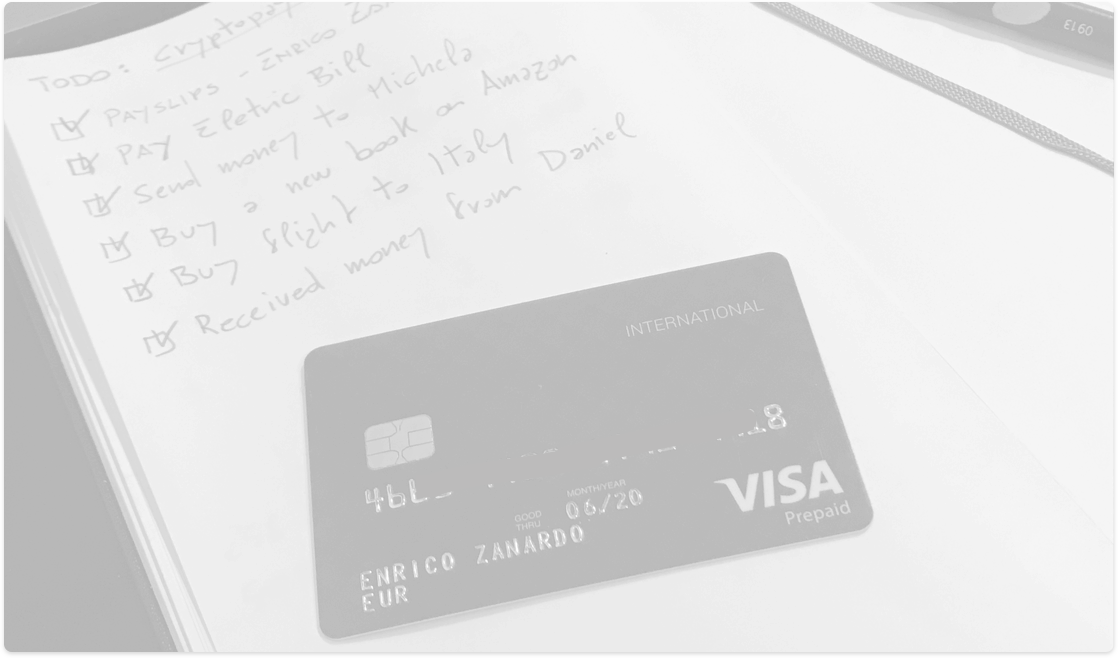 TODO: Cryptopay
PAYSLIPS - ENRICO
PAY Eletric Bill
Send money to Michela
Buy a new book on Amazon
Buy flight to Italy
Received money from Daniel
0913
INTERNATIONAL
28
MONTH/YEAR
GOOD THRU 06/20
VISA
Prepaid
ENRICO ZANARDO
EUR